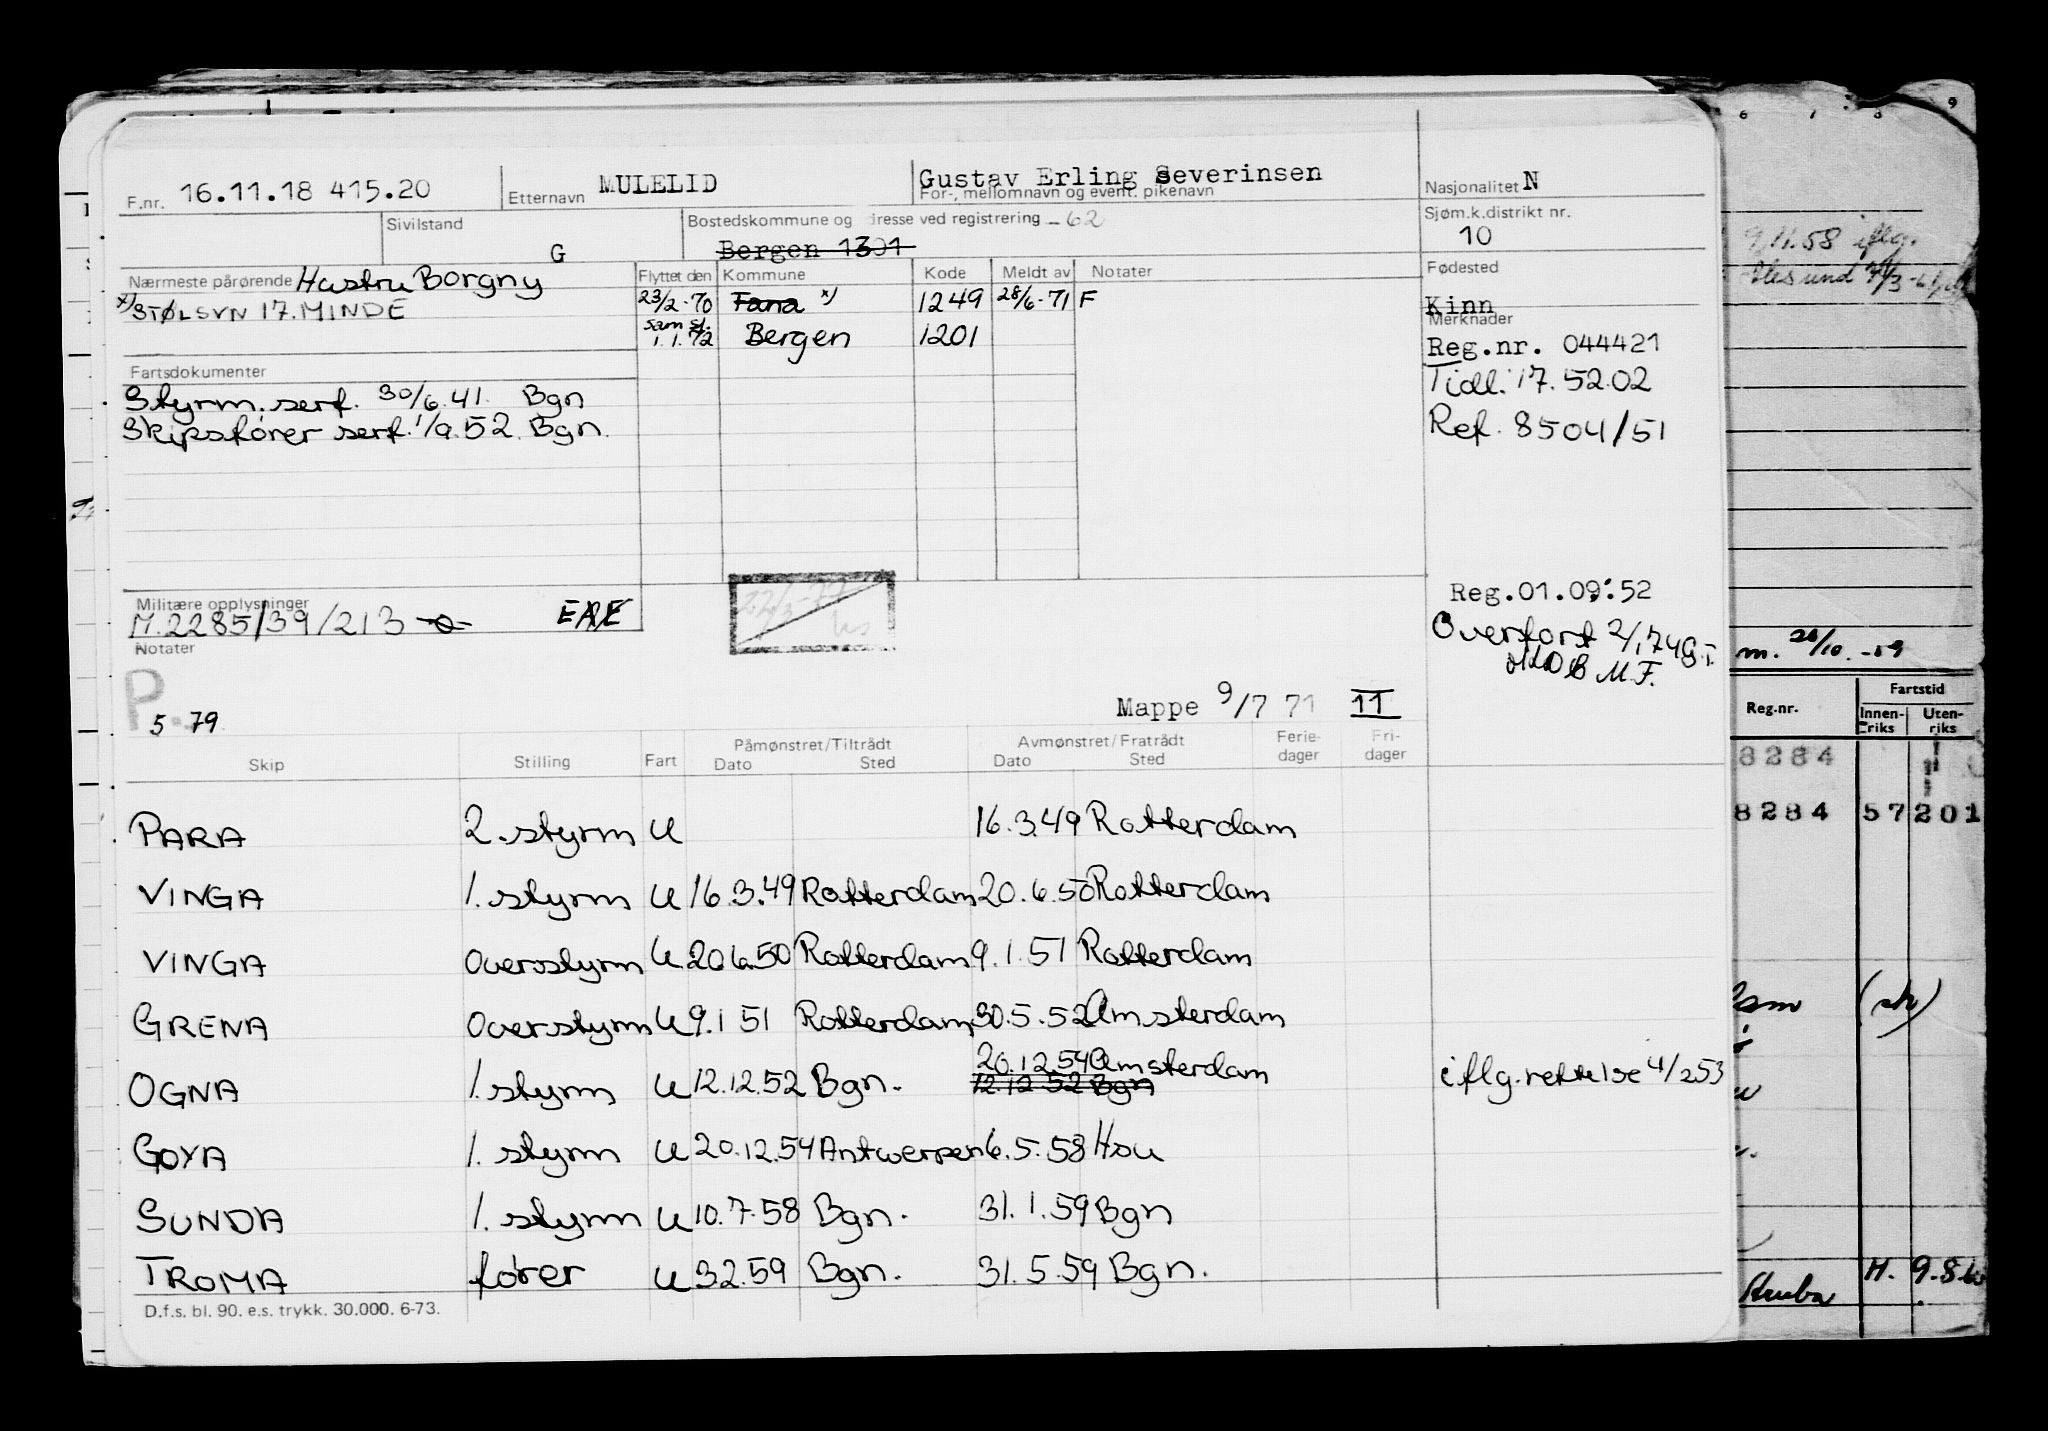 F.nr. 16.11.18 415.20 Etternavn MULELID Gustav Erling Severinsen Nasjonalitet N
For-, mellomnavn og event. pikenavn
Sivilstand G Bostedskommune og dresse ved registrering - 62 Sjøm.k.distrikt nr. 10
Bergen 1301
Nærmeste pårørende Hustru Borgny Flyttet den Kommune Kode Meldt av Notater Fødested
x) STØLSVN 17. MINDE 23/2-70 Fana x) 1249 28/6-71 F Kinn
sam sl. 1.1.72 Bergen 1201 Merknader
Reg.nr. 044421
Fartsdokumenter Tidl. 17.52.02
Styrm. serf. 30/6.41. Bgn
Skipsfører serf. 1/9.52. Bgn. Ref. 8504/51
Militære opplysninger Reg.01.09.52
M.2285/39/213 Overført 2/1 74
M.F.
Notater
P.
5 79
Mappe 9/7 71 11
Skip Stilling Fart Påmønstret/Tiltrådt Avmønstret/Fratrådt Ferie-dager Fri-dager
Dato Sted Dato Sted
PARA 2. styrm U 16.3.49 Rotterdam
VINGA 1. styrm U 16.3.49 Rotterdam 20.6.50 Rotterdam
VINGA Overstyrm U 20.6.50 Rotterdam 9.1.51 Rotterdam
GRENA Overstyrm U 9.1 51 Rotterdam 30.5.52 Amsterdam
20.12.54 Amsterdam
OGNA 1. styrm U 12.12.52 Bgn. 12.12.52 Bgn iflg. rettelse 4/2 53
GOYA 1. styrm U 20.12.54 Antwerpen 6.5.58 Hou
SUNDA 1. styrm U 10.7.58 Bgn. 31.1.59 Bgn
TROMA fører U 3.2.59 Bgn. 31.5.59 Bgn.
D.f.s. bl. 90. e.s. trykk. 30.000. 6-73.
6 7 8 9
9.11.58 iflg.
m. 26/10.-59
Reg.nr. Fartstid
Innen-riks Uten-riks
8284
8284 57 201
H. 9.8.